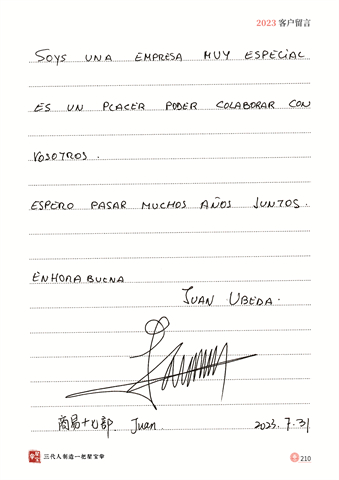 2023 客户留言
SOYS UNA EMPRESA MUY ESPECIAL
ES UN PLACER PODER COLABORAR CON
VOSOTROS.
ESPERO PASAR MUCHOS AÑOS JUNTOS.
ENHORABUENA
JUAN UBEDA.
商易十七部. Juan 2023. 7. 31
三代人制造一把婴宝伞
210